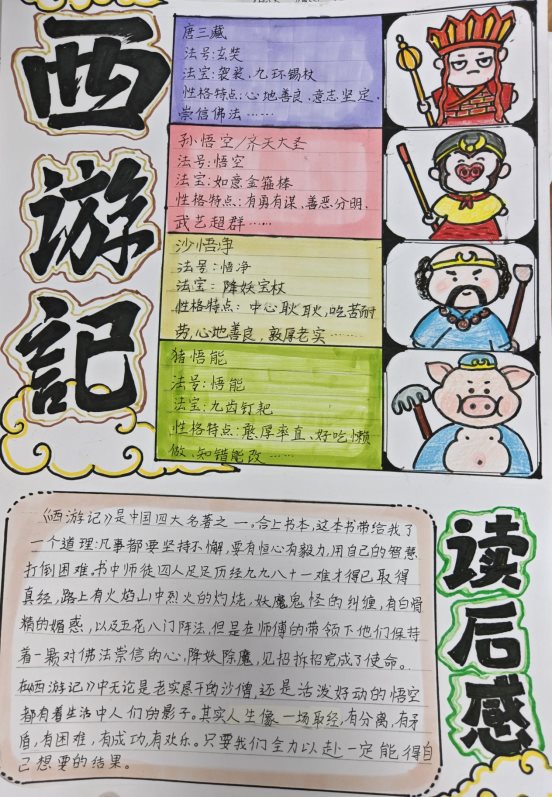 西
游
記
唐三藏
法号:玄奘
法宝:袈裟、九环锡杖
性格特点:心地善良、意志坚定、
崇信佛法……
孙悟空/齐天大圣
法号:悟空
法宝:如意金箍棒
性格特点:有勇有谋、善恶分明、
武艺超群……
沙悟净
法号:悟净
法宝:降妖宝杖
性格特点:中心耿耿,吃苦耐
劳,心地善良,敦厚老实……
猪悟能
法号:悟能
法宝:九齿钉耙
性格特点:憨厚率直、好吃懒
做、知错能改……
《西游记》是中国四大名著之一,合上书本,这本书带给我了
一个道理:凡事都要坚持不懈,要有恒心有毅力,用自己的智慧
打倒困难。书中师徒四人足足历经九九八十一难才得已取得
真经,路上有火焰山中烈火的灼烧,妖魔鬼怪的纠缠,有白骨
精的媚惑,以及五花八门阵法,但是在师傅的带领下他们保持
着一颗对佛法崇信的心,降妖除魔,见招拆招完成了使命。
在《西游记》中无论是老实尽干的沙僧,还是活泼好动的悟空
都有着生活中人们的影子。其实人生像一场取经,有分离,有矛
盾,有困难,有成功,有欢乐。只要我们全力以赴一定能得自
己想要的结果。
读
后
感